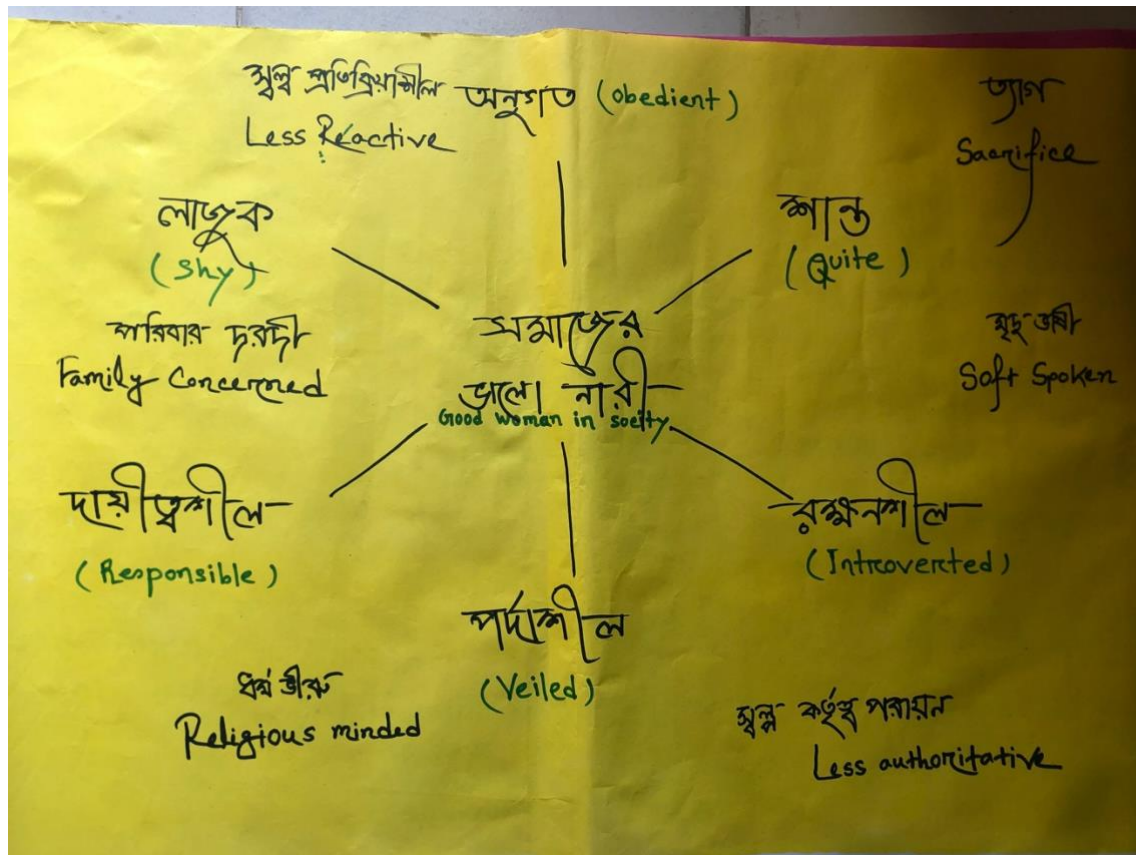 স্বল্প প্রতিক্রিয়াশীল
Less Reactive
অনুগত (obedient)
ত্যাগ
Sacrifice
লাজুক
(Shy)
শান্ত
(Quite)
পরিবার দরদী
Family Concerned
সমাজের
ভালো নারী
Good woman in soeity
মৃদু ভাষী
Soft Spoken
দায়ীত্বশীল
(Responsible)
রক্ষনশীল
(Introverted)
পর্দাশীল
(Veiled)
ধর্ম ভীরু
Religious minded
স্বল্প কর্তৃত্ব পরায়ন
Less authoritative